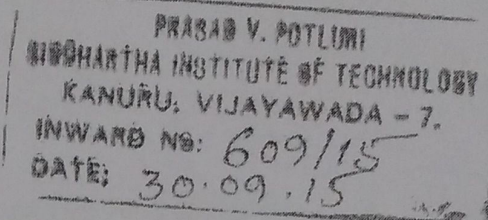 PRASAD V. POTLURI
SIDDHARTHA INSTITUTE OF TECHNOLOGY
KANURU, VIJAYAWADA - 7.
INWARD NO: 609/15
DATE: 30.09.15